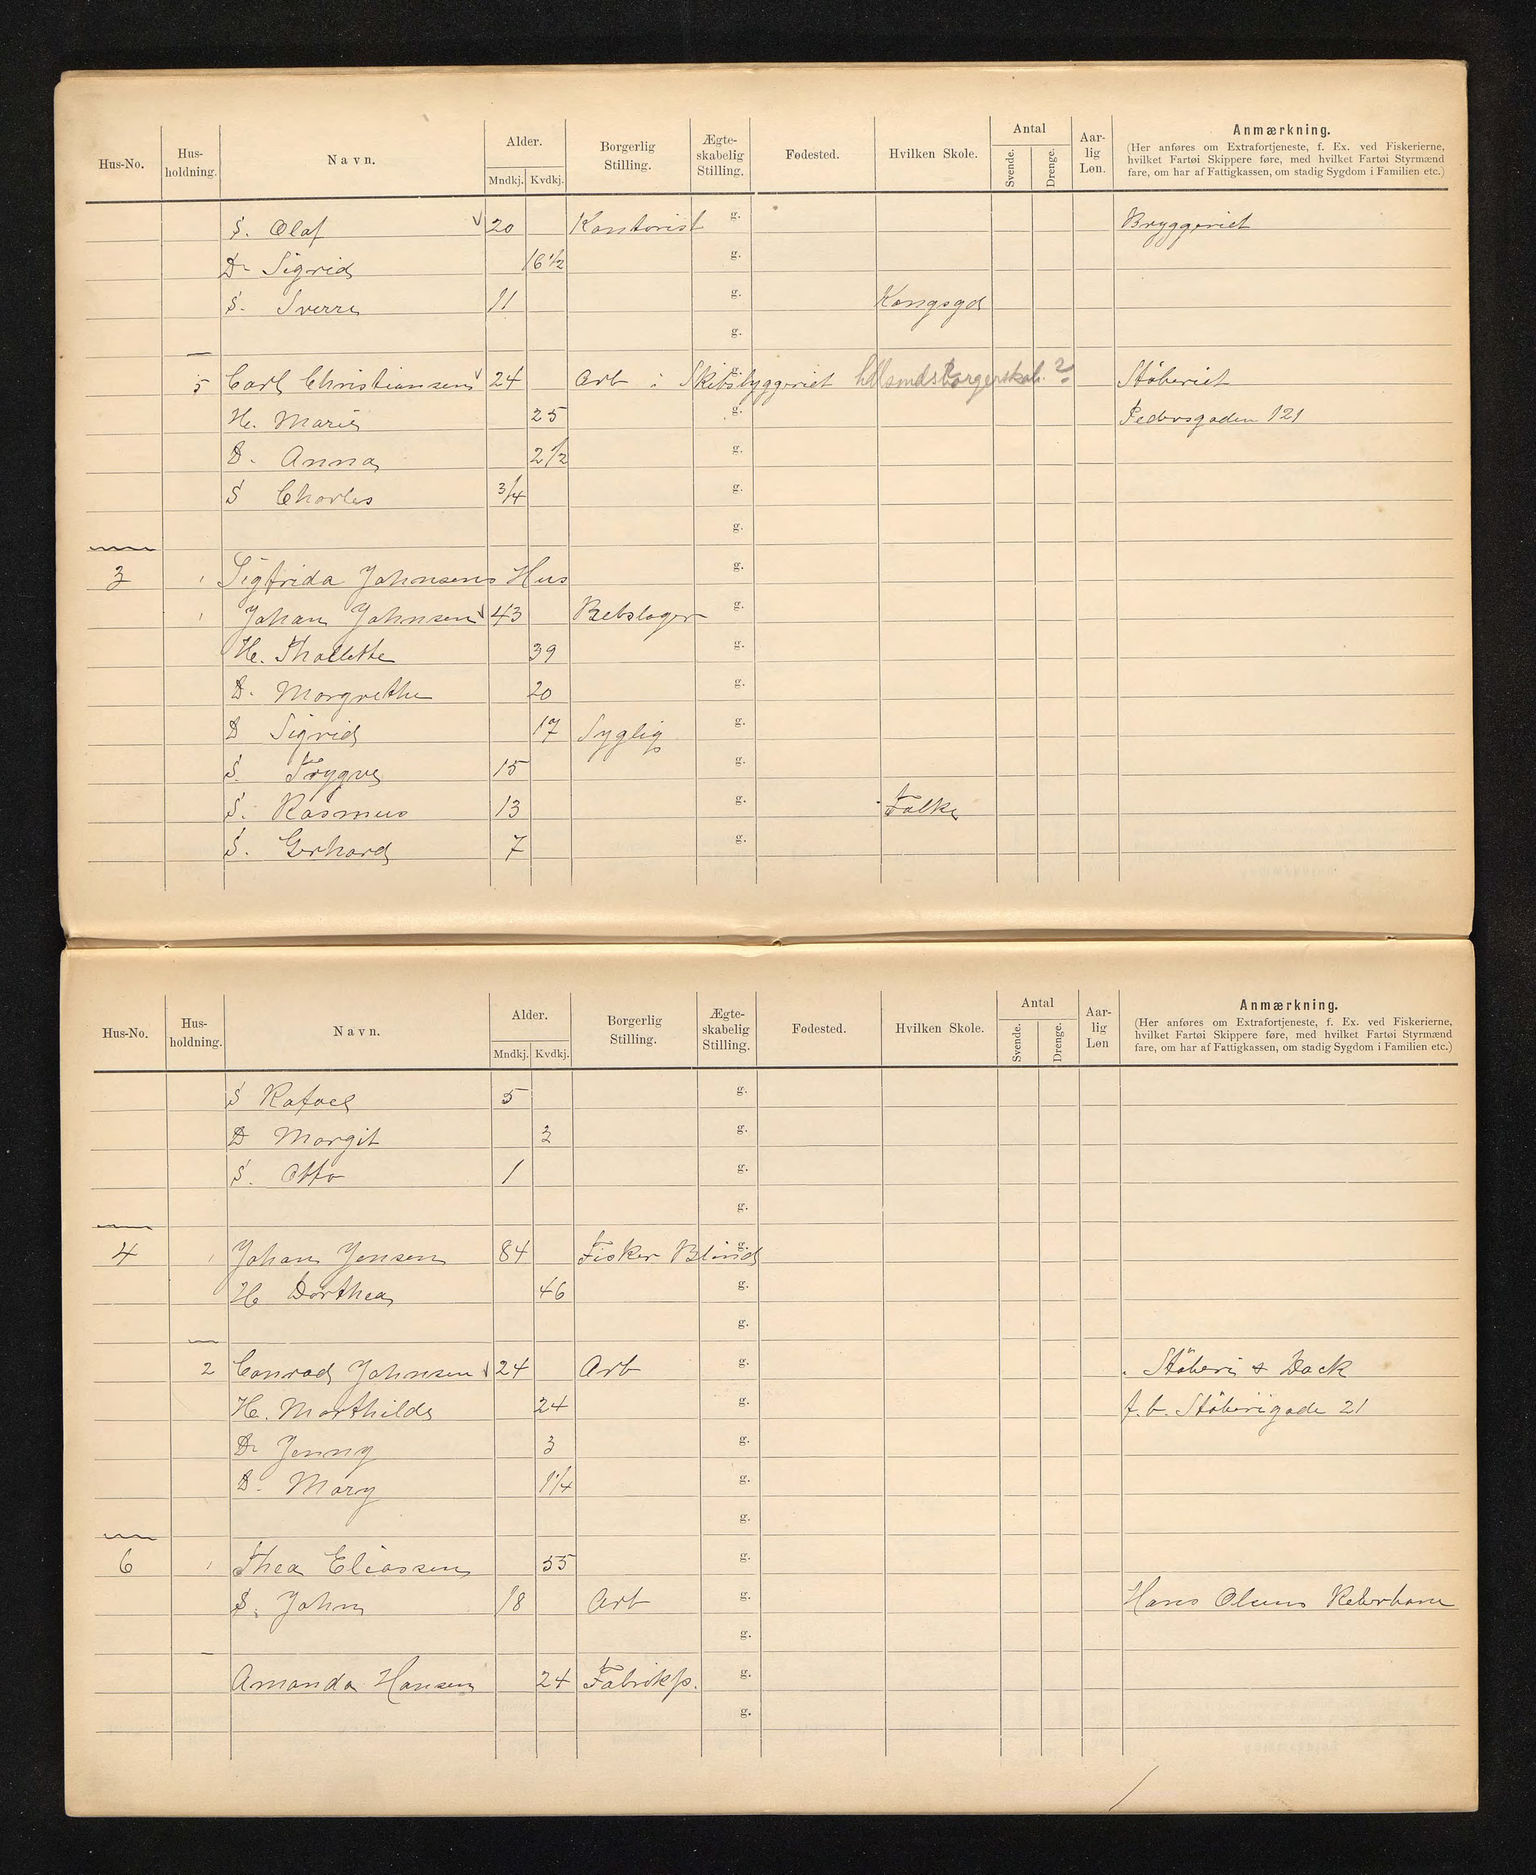 Hus-No. Hus-holdning. Navn. Alder. Mndkj. Kvdkj. Borgerlig Stilling. Ægte-skabelig Stilling. Fødested. Hvilken Skole. Antal Svende. Drenge. Aar-lig Løn. Anmærkning.
(Her anføres om Extrafortjeneste, f. Ex. ved Fiskerierne,
hvilket Fartøi Skippere føre, med hvilket Fartøi Styrmænd
fare, om har af Fattigkassen, om stadig Sygdom i Familien etc.)
S. Olaf 20 Kontorist g. Bryggeriet
D. Sigrid 16 1/2 g.
S. Sverre 11 g. Kongsgd
g.
5 Carl Christiansen 24 Arb i Skibsbyggeriet g. ? Støberiet
He. Marie 25 g. Pedersgaden 121
D. Anna 2 1/2 g.
S Charles 3/4 g.
g.
3 1 Sigfrida Johnsens Hus g.
1 Johan Johnsen 43 Rebslager g.
He. Thalette 39 g.
D. Margrethe 20 g.
D Sigrid 17 Syglig g.
S. Trygve 15 g.
S. Rasmus 13 g. Folke
S. Gerhard 7 g.
Hus-No. Hus-holdning. Navn. Alder. Mndkj. Kvdkj. Borgerlig Stilling. Ægte-skabelig Stilling. Fødested. Hvilken Skole. Antal Svende. Drenge. Aar-lig Løn Anmærkning.
(Her anføres om Extrafortjeneste, f. Ex. ved Fiskerierne,
hvilket Fartøi Skippere føre, med hvilket Fartøi Styrmænd
fare, om har af Fattigkassen, om stadig Sygdom i Familien etc.)
S Rafael 5 g.
D Margit 3 g.
S. Otto 1 g.
g.
4 1 Johan Jensen 84 Fisker Blind g.
He Dorthea 46 g.
g.
2 Conrad Johnsen 24 Arb g. Støberi & Dock
He. Marthilde 24 g. f. b. Støberigade 21
D. Jenny 3 g.
D. Mary 1 1/4 g.
g.
6 1 Thea Eliassen 55 g.
S. John 18 Arb g. Hans Olsens Reberbane
g.
Amanda Hansen 24 Fabrikp. g.
g.